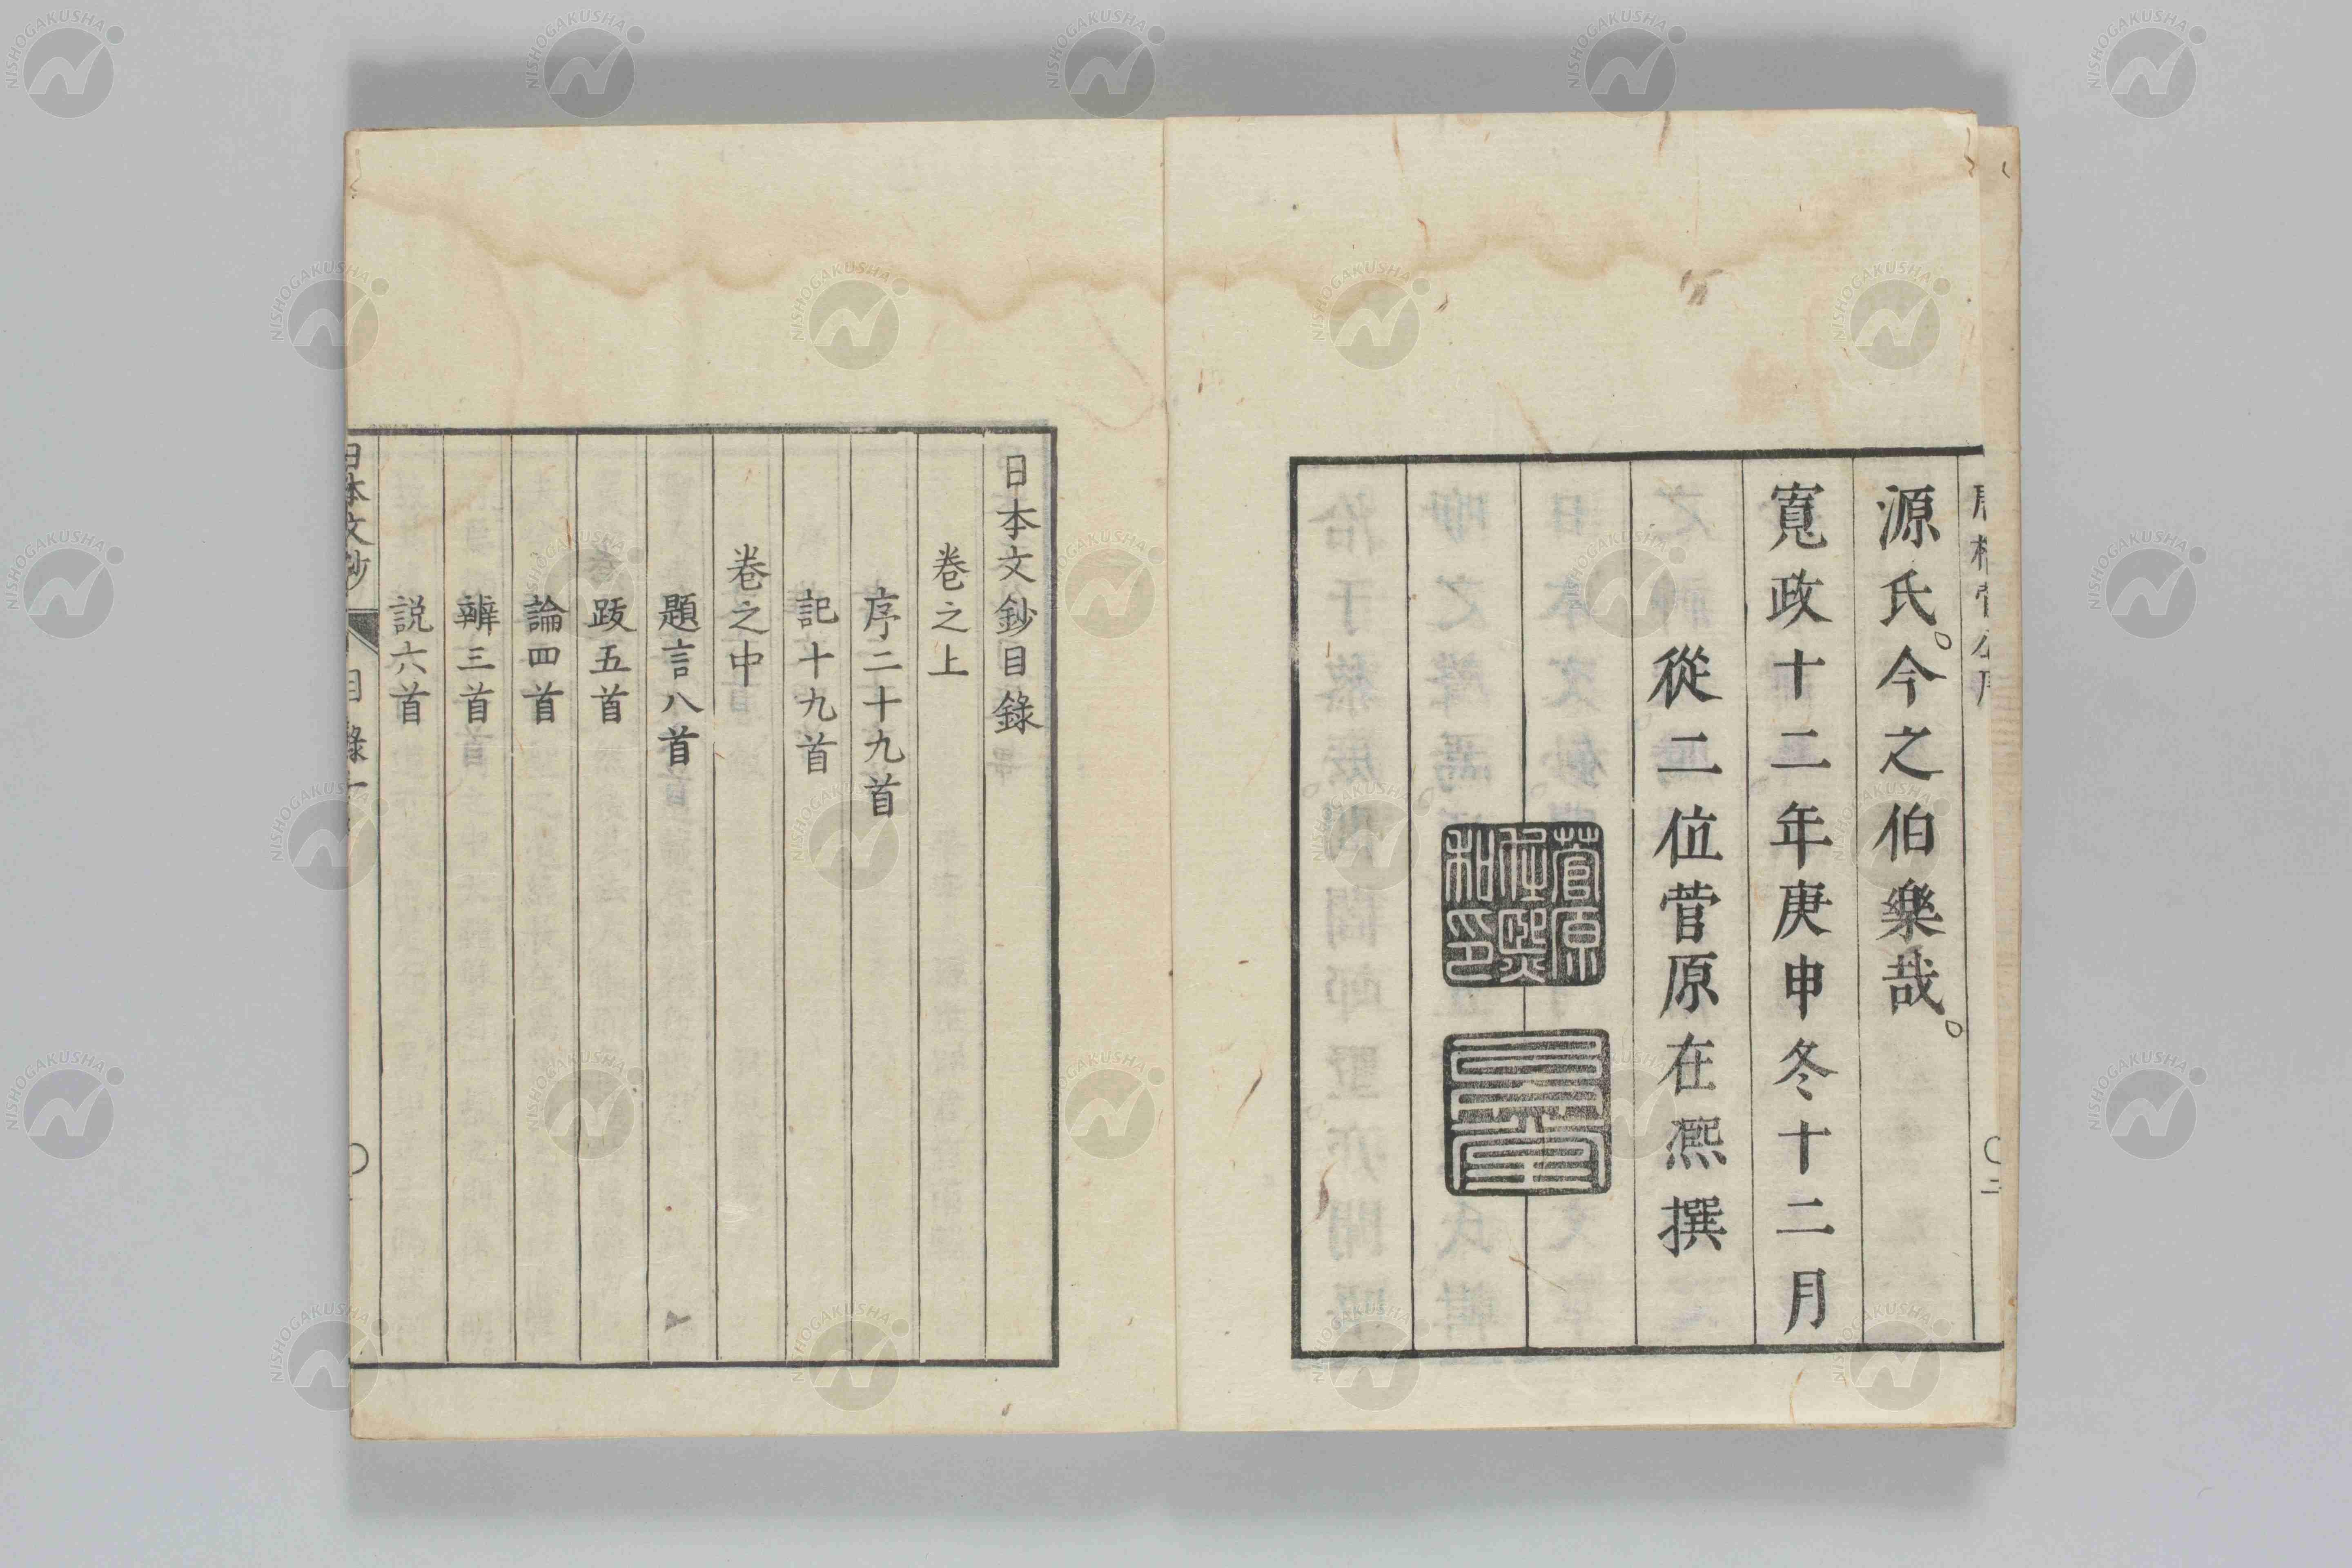 源氏。今之伯樂哉。
寬政十二年庚申冬十二月
從二位菅原在熈撰
菅原
在熈
和印
日本文鈔目錄
卷之上
序二十九首
記十九首
卷之中
題言八首
跋五首
論四首
辨三首
説六首
日本文鈔 目錄 一
NISHOGAKUSHA